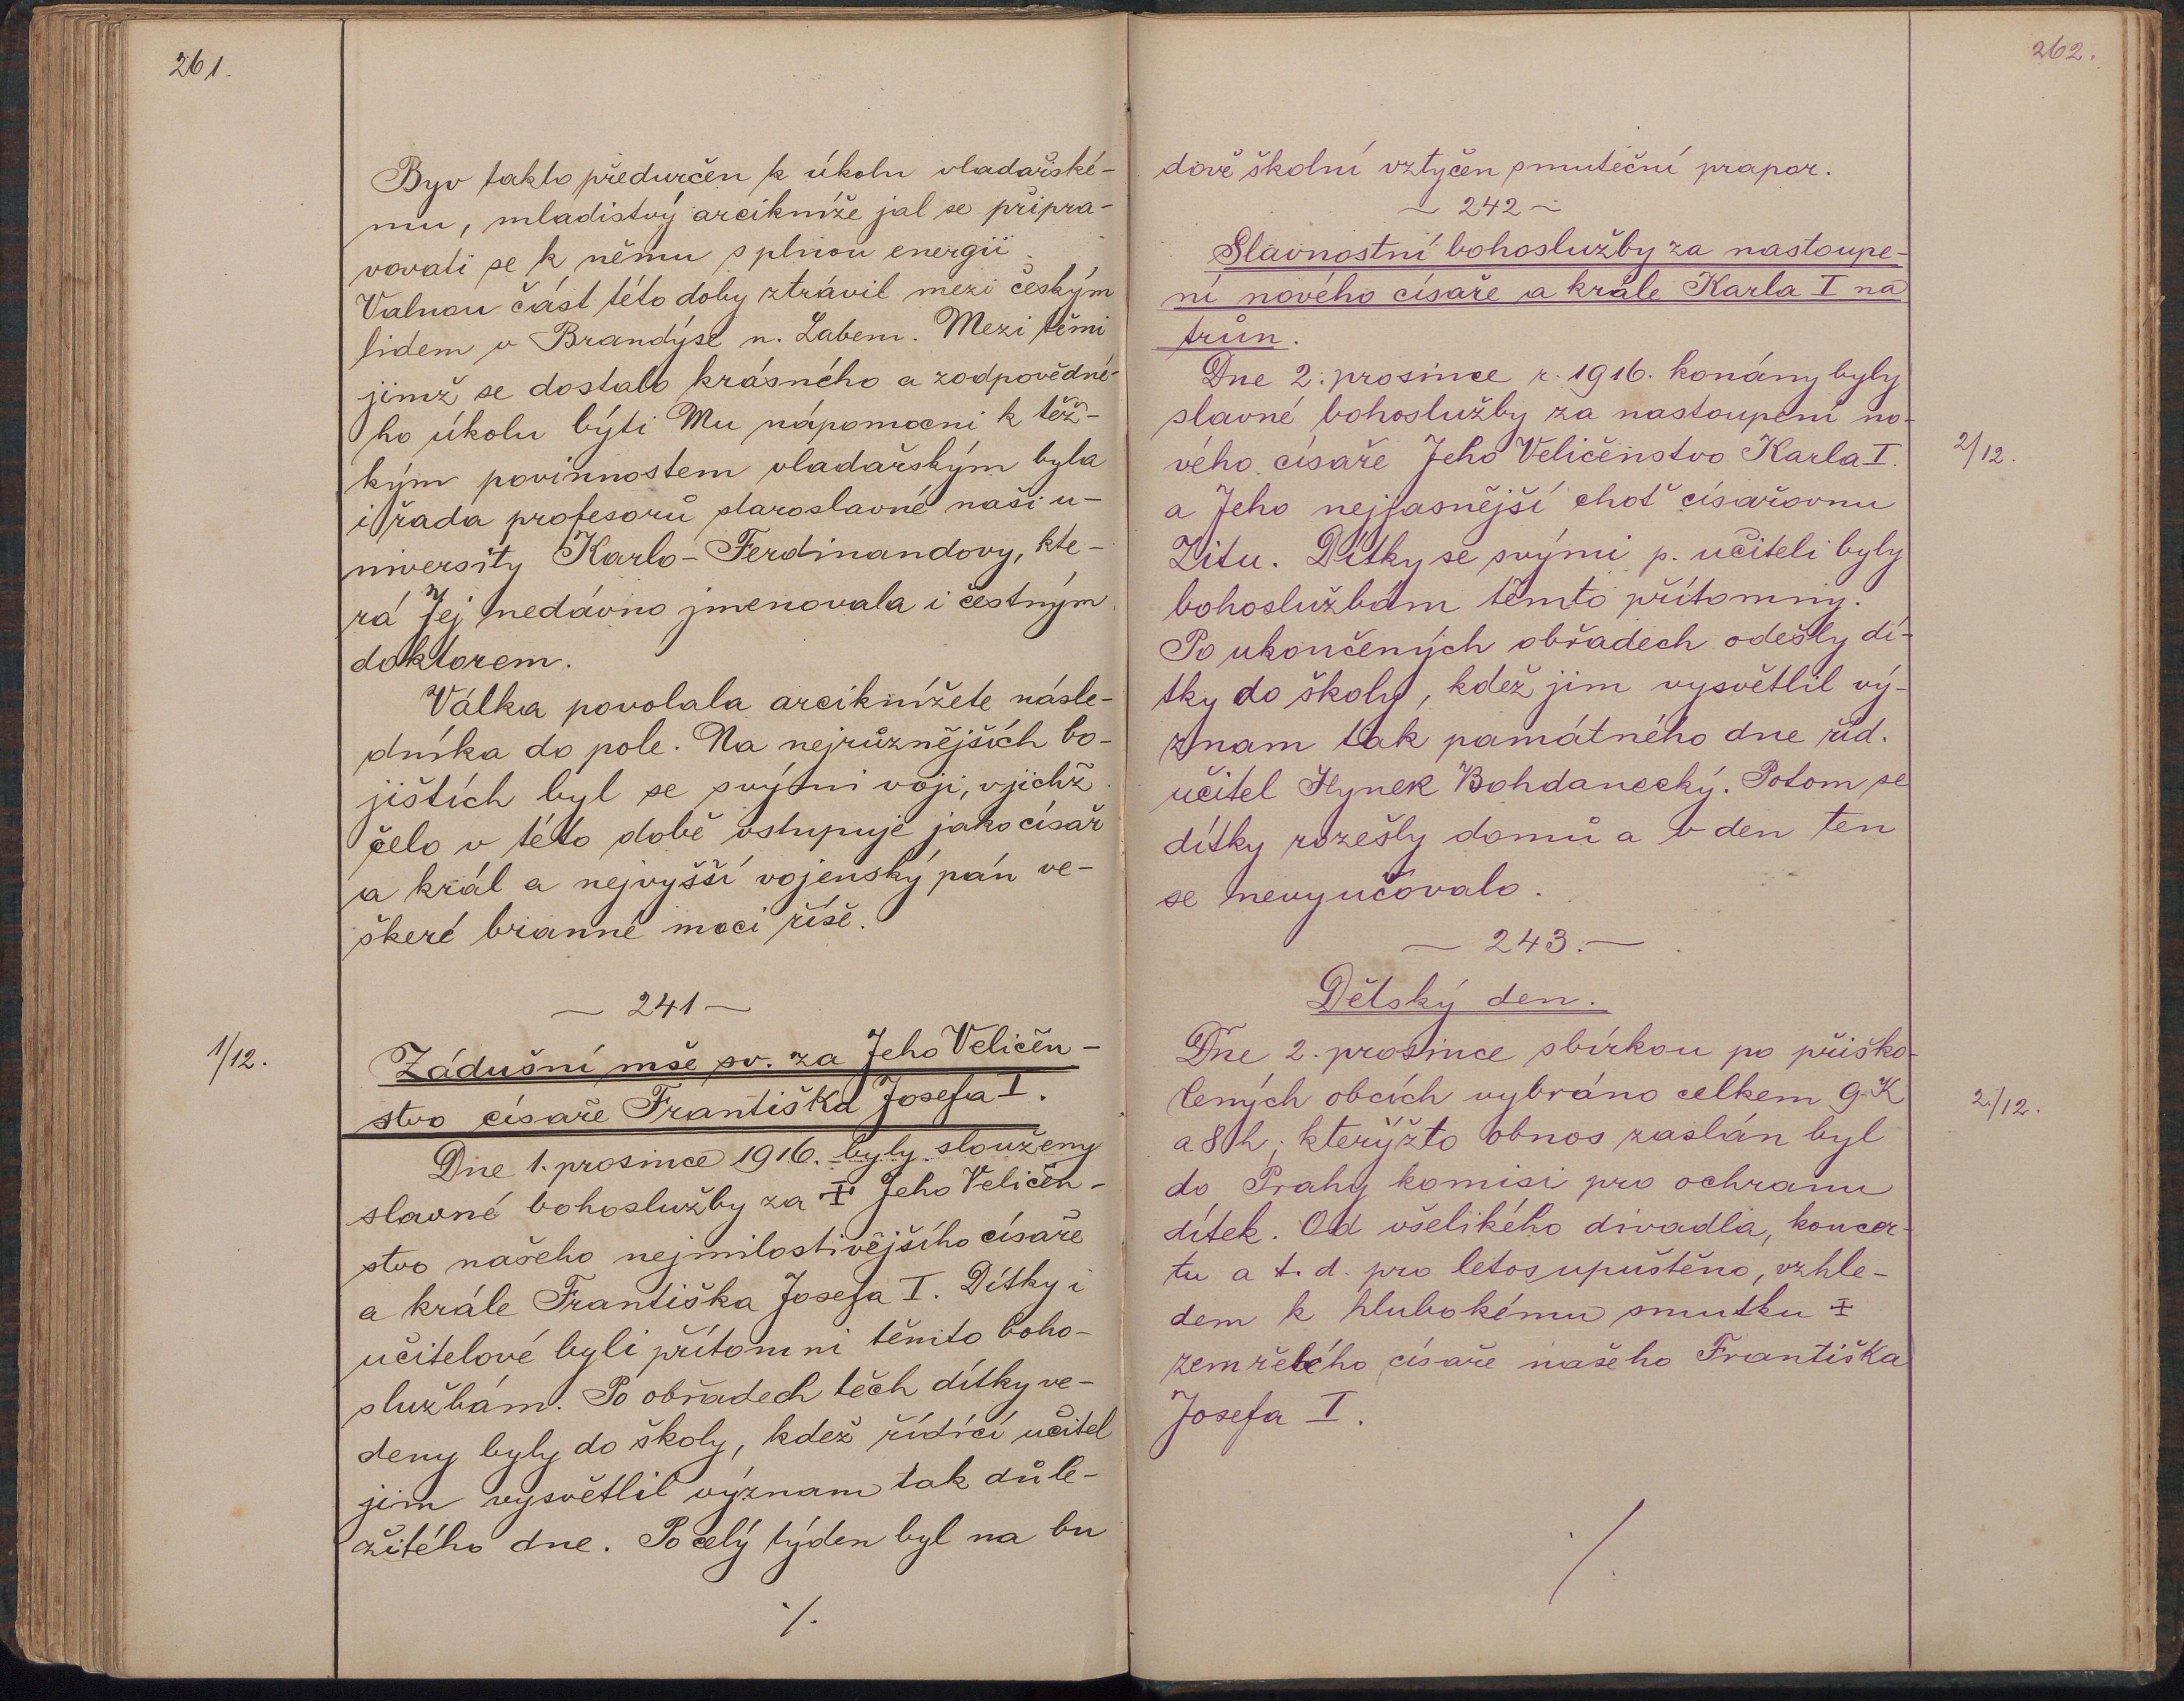 261.
Byv takto předurčen k úkolu vladařské-
mu, mladistvý arcikníže jal se připra-
vovati se k němu s plnou energií.
Valnou část této doby ztrávil mezi českým
lidem v Brandýse n. Labem. Mezi těmi
jimž se dostalo krásného a zodpovědné-
ho úkolu býti Mu nápomocni k těž-
kým povinnostem vladařským byla
i řada profesorů staroslavné naši u-
niversity Karlo-Ferdinandovy, kte-
rá Jej nedávno jmenovala i čestným
doktorem.
Válka povolala arciknížete násle-
dníka do pole. Na nejrůznějších bo-
jištích byl se svými voji, v jichž
čelo v této době vstupuje jako císař
a král a nejvyšší vojenský pán ve-
škeré branné moci říše.
— 241 —
1/12.
Zádušní mše sv. za Jeho Veličen-
stvo císaře Františka Josefa I.
Dne 1. prosince 1916. byly slouženy
slavné bohoslužby za ‡ Jeho Veličen-
stvo našeho nejmilostivějšího císaře
a krále Františka Josefa I. Dítky i
učitelové byli přítomni těmto boho-
službám. Po obřadech těch dítky ve-
deny byly do školy, kdež řídící učitel
jim vysvětlil význam tak důle-
žitého dne. Po celý týden byl na bu
./.
262.
dově školní vztyčen smuteční prapor.
— 242 —
Slavnostní bohoslužby za nastoupe-
ní nového císaře a krále Karla I na
trůn.
Dne 2. prosince r. 1916. konány byly
slavné bohoslužby za nastoupení no-
vého císaře Jeho Veličenstvo Karla I.
2/12.
a Jeho nejjasnější choť císařovnu
Zitu. Dítky se svými p. učiteli byly
bohoslužbám těmto přítomny.
Po ukončených obřadech odešly dí-
tky do školy, kdež jim vysvětlil vý-
znam tak památného dne říd.
učitel Hynek Bohdanecký. Potom se
dítky rozešly domů a v den ten
se nevyučovalo.
— 243. —
Dětský den.
Dne 2. prosince sbírkou po přiško-
lených obcích vybráno celkem 9 K
2./12.
a 8 h; kterýžto obnos zaslán byl
do Prahy komisi pro ochranu
dítek. Od všelikého divadla, koncer-
tu a t. d. pro letos upuštěno, vzhle-
dem k hlubokému smutku ‡
zemřelého císaře našeho Františka
Josefa I.
./.